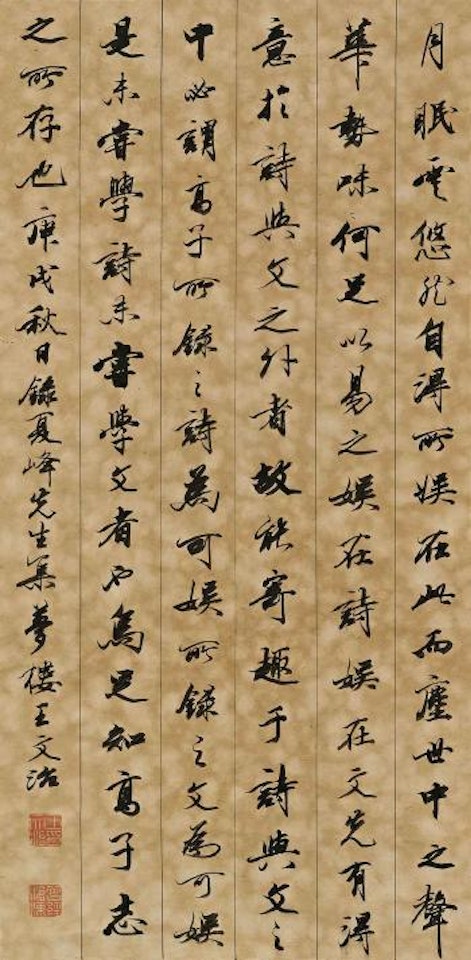 月眠雲悠然自得所娛在此而塵世中之聲
華勢味何足以易之娛在詩娛在文先有得
意於詩與文之外者故能寄趣于詩與文之
中必謂高子所錄之詩為可娛所錄之文為可娛
是未嘗學詩未嘗學文者也烏足知高子志
之所存也庚戌秋日錄夏峰先生集夢樓王文治